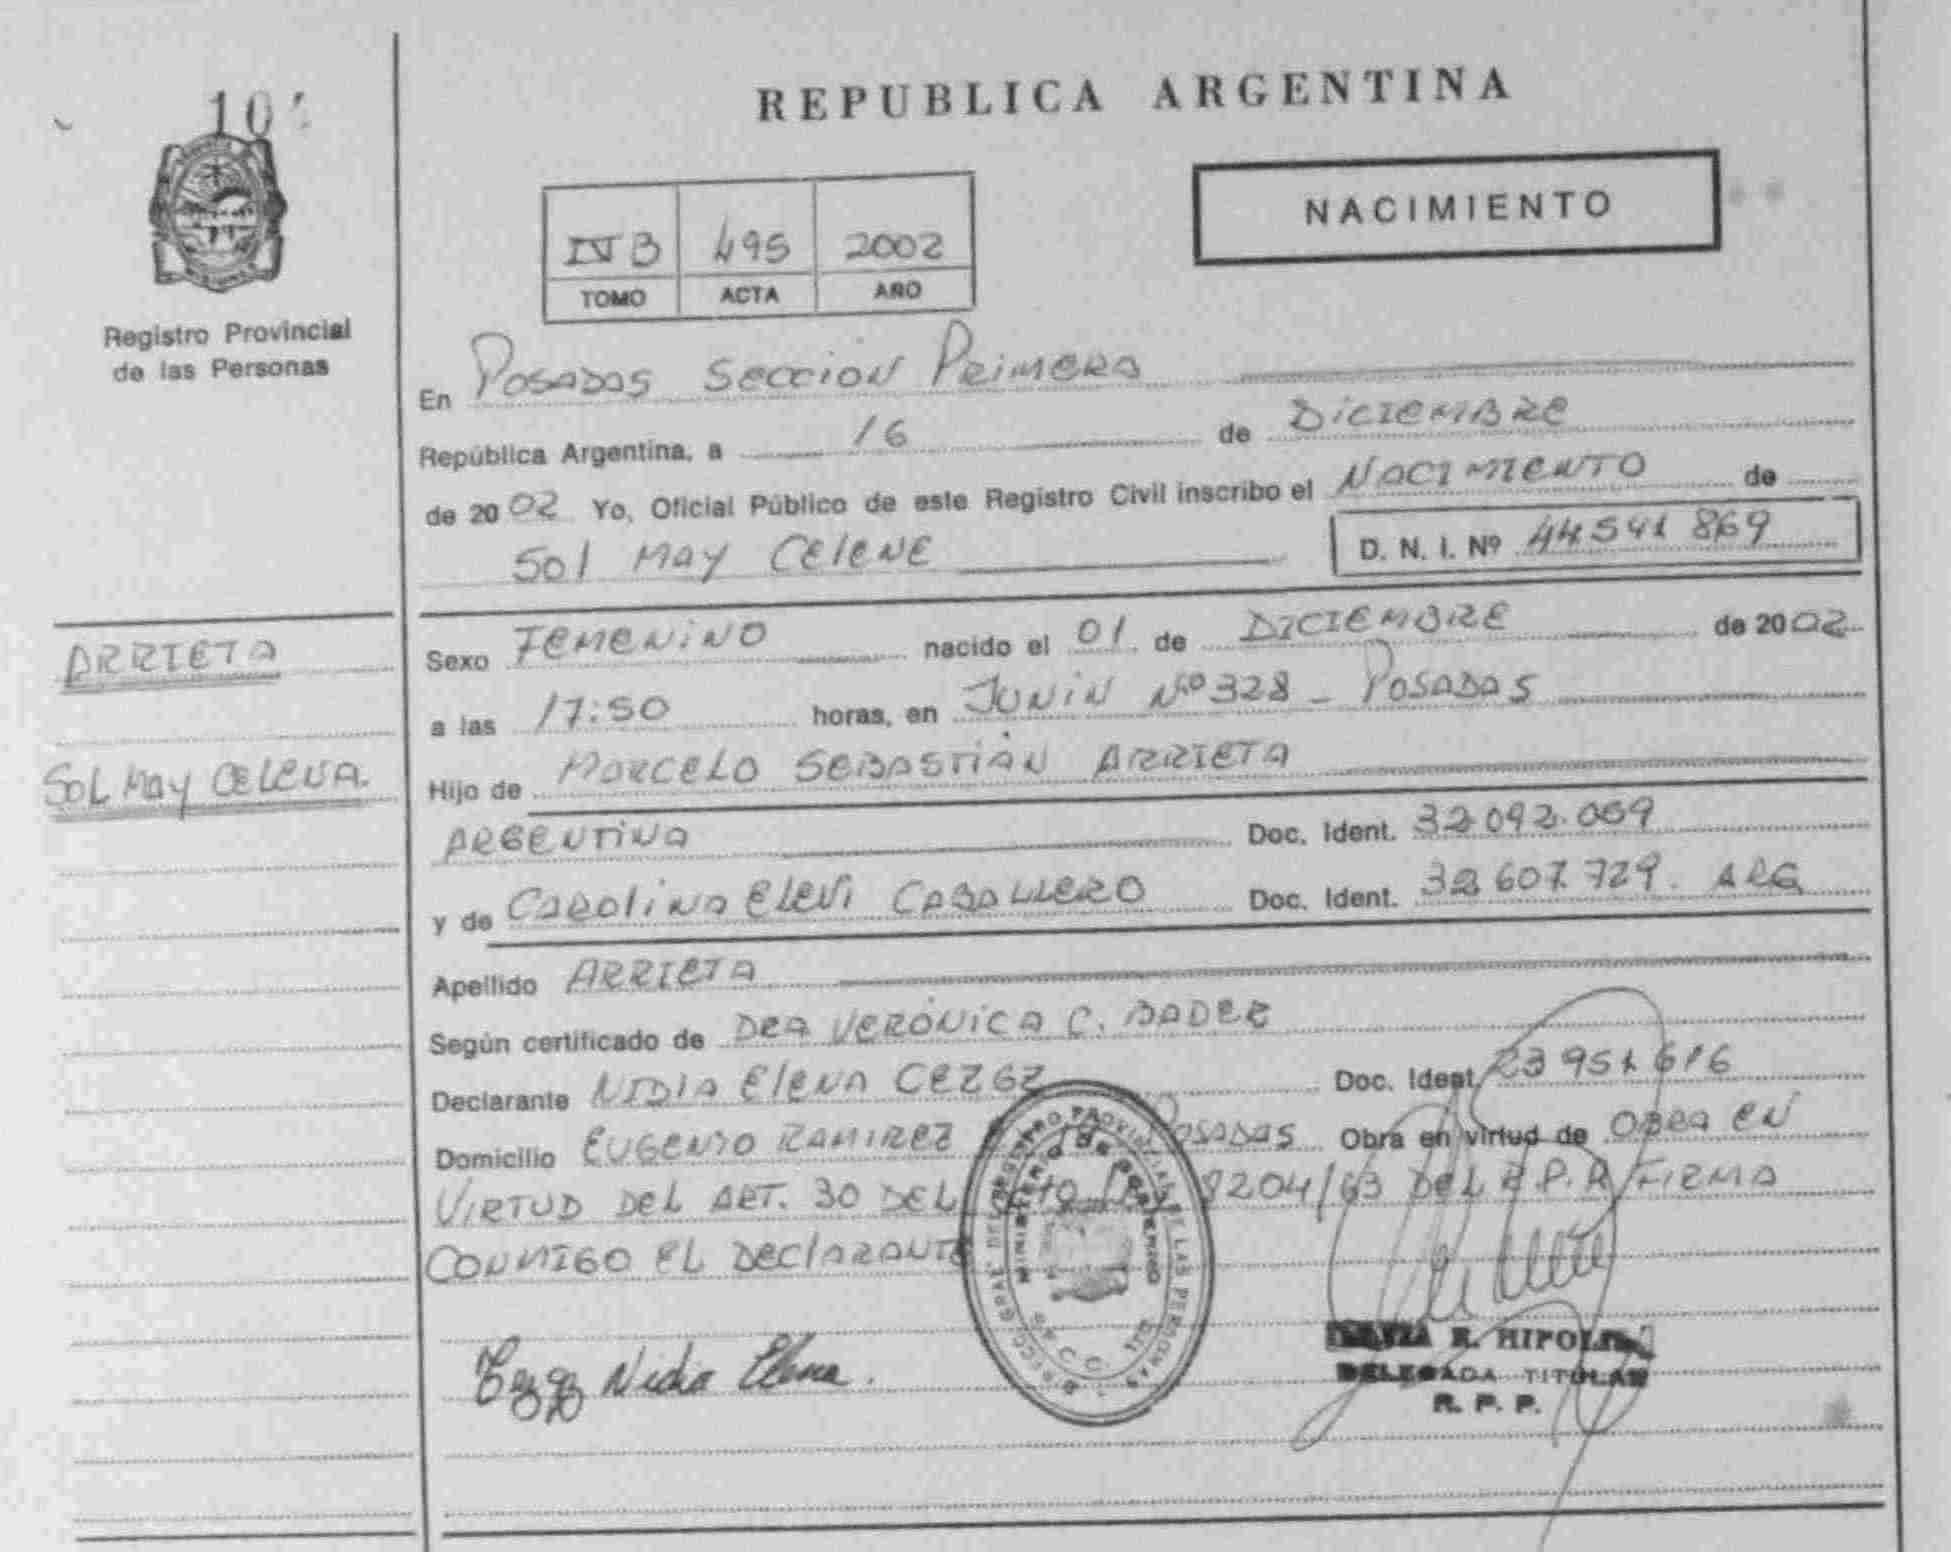 REPUBLICA ARGENTINA
10
NACIMIENTO
IV B 495 2002
TOMO ACTA AÑO
Registro Provincial
de las Personas
En Posadas Sección Primera
República Argentina, a 16 de Diciembre
de 2002 Yo, Oficial Público de este Registro Civil inscribo el Nacimiento de
Sol May Celene D. N. I. Nº 44541869
ARRIETA
Sexo Femenino nacido el 01 de Diciembre de 2002
a las 17:50 horas, en Junin Nº 328 - Posadas
SOL May CELENA.
Hijo de Marcelo Sebastián Arrieta
Argentina Doc. Ident. 32.092.059
y de Carolina Elevi Caballero Doc. Ident. 32.607.729. ARG
Apellido ARRIETA
Según certificado de DRA VERÓNICA C. BADER
Declarante Nidia Elena Doc. Ident. 23951616
Domicilio Eugenio Ramirez Posadas Obra en virtud de Obra en
Virtud del Art. 30 del 8204/63 del R.P.P. Firma
Conmigo el Declarante
Nidia Elena.
R. HIPOLIT
DELEGADA TITULAR
R. P. P.